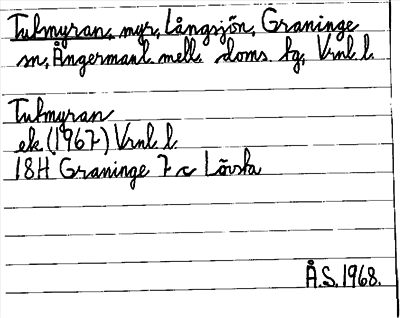 Tulmyran, myr, Långsjön, Graninge
sn, Ångermanl. mell. doms. hg, Vrnl. l.
Tulmyran
ek (1967) Vrnl. l.
18H Graninge 7 c Lövsta
Å.S. 1968.